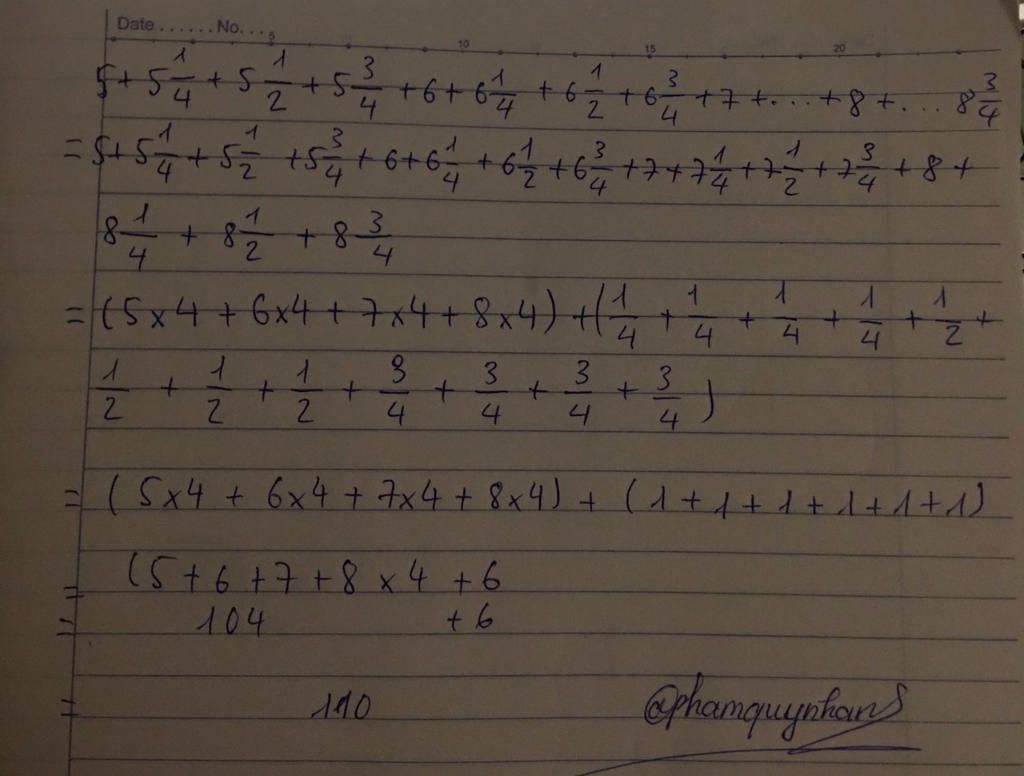 Date ...... No. ... 5 10 15 20
5 + 5 1/4 + 5 1/2 + 5 3/4 + 6 + 6 1/4 + 6 1/2 + 6 3/4 + 7 + ... + 8 + ... 8 3/4
= 5 + 5 1/4 + 5 1/2 + 5 3/4 + 6 + 6 1/4 + 6 1/2 + 6 3/4 + 7 + 7 1/4 + 7 1/2 + 7 3/4 + 8 +
8 1/4 + 8 1/2 + 8 3/4
= (5 x 4 + 6 x 4 + 7 x 4 + 8 x 4) + (1/4 + 1/4 + 1/4 + 1/4 + 1/2 +
1/2 + 1/2 + 1/2 + 3/4 + 3/4 + 3/4 + 3/4)
= (5 x 4 + 6 x 4 + 7 x 4 + 8 x 4) + (1 + 1 + 1 + 1 + 1 + 1)
= (5 + 6 + 7 + 8 x 4 + 6
= 104 + 6
= 110
@phamquynhanS